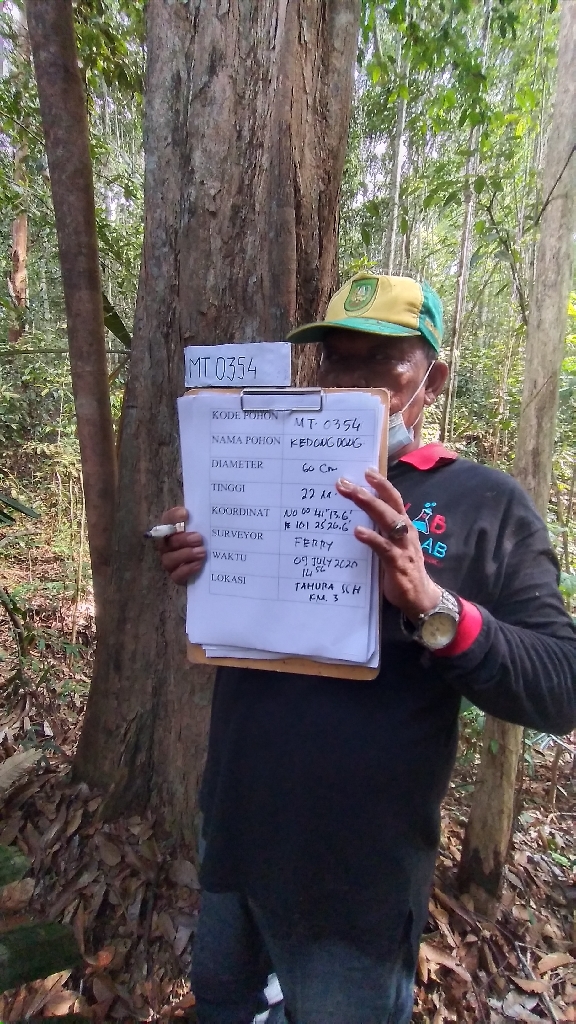 MT 0354
KODE POHON MT. 0354
NAMA POHON KEDONGDONG
DIAMETER 60 Cm
TINGGI 22 M.
KOORDINAT N0 00 41'13.6"
E 101 25'20.6"
SURVEYOR FERRY
WAKTU 09 JULY 2020
14 56
LOKASI TAHURA SSH
KM. 3
AB